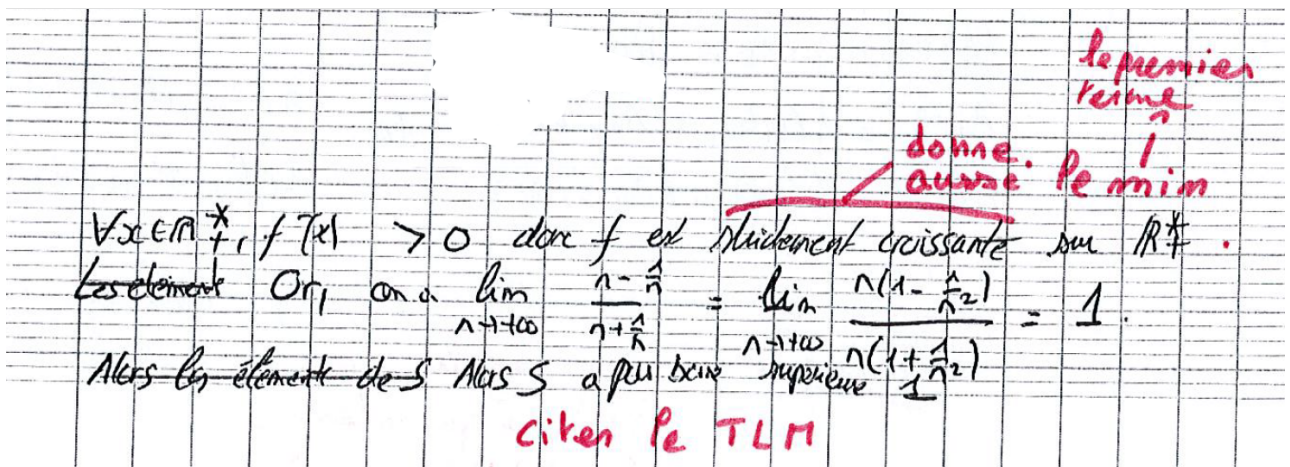 le premier
terme
donne
aussi
le min
∀x∈ℝ₊*, f'(x) > 0 donc f est strictement croissante sur ℝ₊*.
Les élément Or, on a lim_{n→+∞} (n - 1/n)/(n + 1/n) = lim_{n→+∞} n(1 - 1/n²)/n(1 + 1/n²) = 1.
Alors les élément de S Alors S a pour borne supérieure 1
citer le TLM